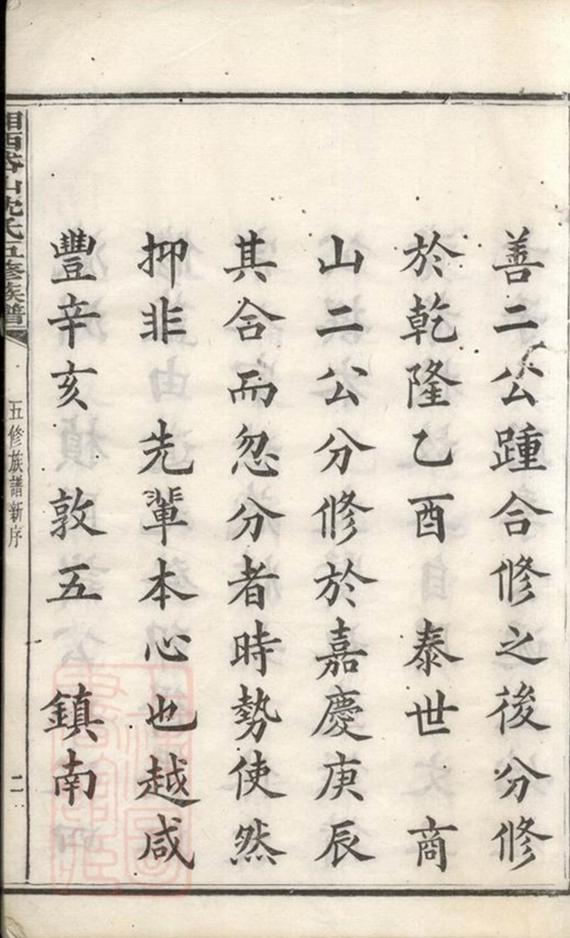 善二公踵合修之後分修
於乾隆乙酉　泰世　商
山二公分修於嘉慶庚辰
其合而忽分者時勢使然
抑非　先輩本心也越咸
豐辛亥　敦五　鎮南
沈氏五修族譜
五修族譜新序
二